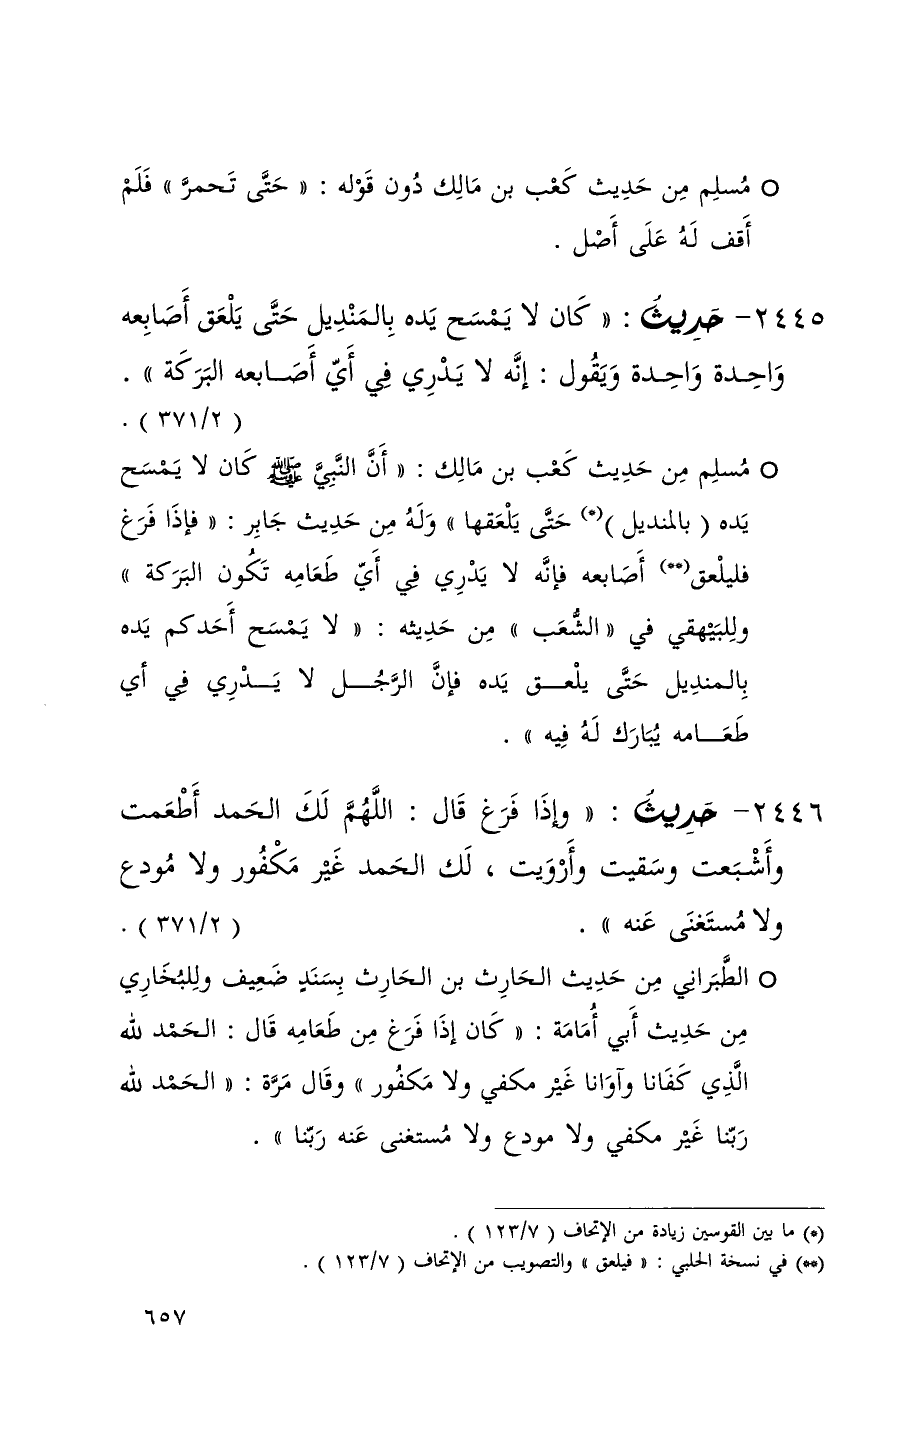 ○ مُسلِم مِن حَدِيث كَعْب بن مَالِك دُون قَوْله : « حَتَّى تَحمرَّ » فَلَمْ
أَقف لَهُ عَلَى أَصْل .
٢٤٤٥- حَدِيثُ : « كَان لا يَمْسَح يَده بِالمَنْدِيل حَتَّى يَلْعَق أَصَابِعه
وَاحِدة وَاحِدة وَيَقُول : إنَّه لا يَدْرِي فِي أَيّ أَصَابعه البَرَكَة » .
( ٣٧١/٢ ) .
○ مُسلِم مِن حَدِيث كَعْب بن مَالِك : « أَنَّ النَّبِيَّ ﷺ كَان لا يَمْسَح
يَده ( بالمنديل )(*) حَتَّى يَلْعَقها » وَلَهُ مِن حَدِيث جَابِر : « فإذَا فَرَغ
فليلْعق(**) أَصَابعه فإنَّه لا يَدْرِي فِي أَيّ طَعَامِه تَكُون البَرَكة »
ولِلبَيْهقي في « الشُّعَب » مِن حَدِيثه : « لا يَمْسَح أَحَدكم يَده
بِالمندِيل حَتَّى يلْعق يَده فإنَّ الرَّجُل لا يَدْرِي فِي أي
طَعَامه يُبَارَك لَهُ فِيه » .
٢٤٤٦- حَدِيثُ : « وإذَا فَرَغ قَال : اللَّهُمَّ لَكَ الحَمد أَطْعَمت
وأَشْبَعت وسَقيت وأَرْوَيت ، لَك الحَمد غَيْر مَكْفُور ولا مُودع
ولا مُستَغنَى عَنه » . ( ٣٧١/٢ ) .
○ الطَّبَراني مِن حَدِيث الحَارِث بن الحَارِث بِسَنَدٍ ضَعِيف ولِلبُخَاري
مِن حَدِيث أَبي أُمَامَة : « كَان إذَا فَرَغ مِن طَعَامِه قَال : الحَمْد لله
الَّذِي كَفَانا وآوَانا غَيْر مكفي ولا مَكفُور » وقَال مَرَّة : « الحَمْد لله
رَبّنا غَيْر مكفي ولا مودع ولا مُستغنى عَنه رَبّنا » .
(*) ما بين القوسين زيادة من الإتحاف ( ١٢٣/٧ ) .
(**) في نسخة الحلبي : « فيلعق » والتصويب من الإتحاف ( ١٢٣/٧ ) .
٦٥٧